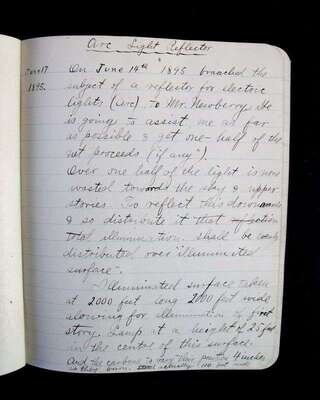 Arc Light Reflector
June 17 1895. On June 14th 1895 broached the
subject of a reflector for electric
lights (arc) to Mr. Newberry. He
is going to assist me as far
as possible & get one-half of the
net proceeds (if any").
Over one half of the light is now
wasted towards the sky & upper
stories. To reflect this downwards
& so distribute it that
total illumination shall be evenly
distributed over "illuminated
surface".
Illuminated surface taken
at 2000 feet long 2000 feet wide
alowing for illumination of first
story. Lamp at a height of 25 feet
in the centre of this surface.
And the carbons to vary their position 4 inches
as they burn.